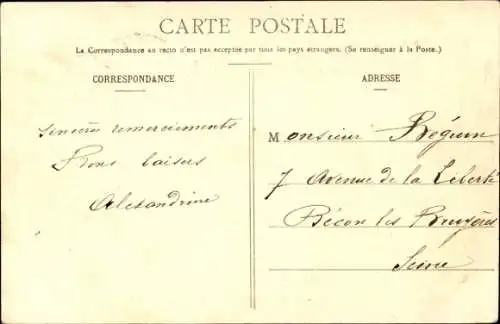 CARTE POSTALE
La Correspondance au recto n'est pas acceptée par tous les pays étrangers. (Se renseigner à la Poste.)
CORRESPONDANCE
ADRESSE
Sincères remerciements
Bons baisers
Alexandrine
Monsieur Béguin
7 Avenue de la Liberté
Bécon les Bruyères
Seine